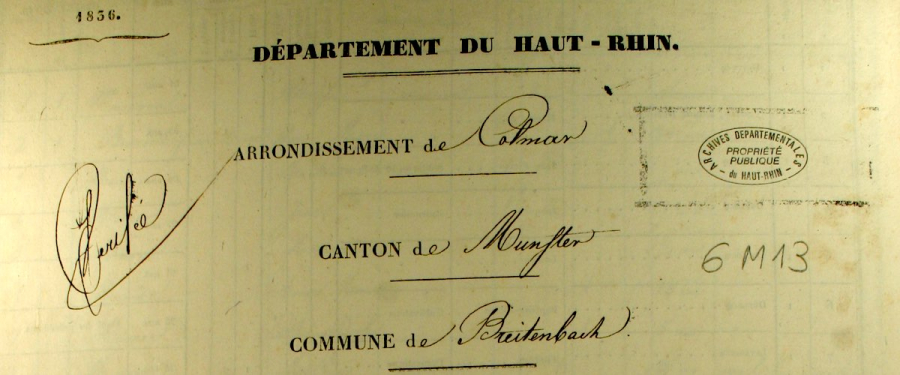 1836.
DÉPARTEMENT DU HAUT-RHIN.
ARRONDISSEMENT de Colmar
ARCHIVES DEPARTEMENTALES
PROPRIÉTÉ
PUBLIQUE
du HAUT-RHIN
Verifiée
CANTON de Munster
6 M 13
COMMUNE de Breitenbach